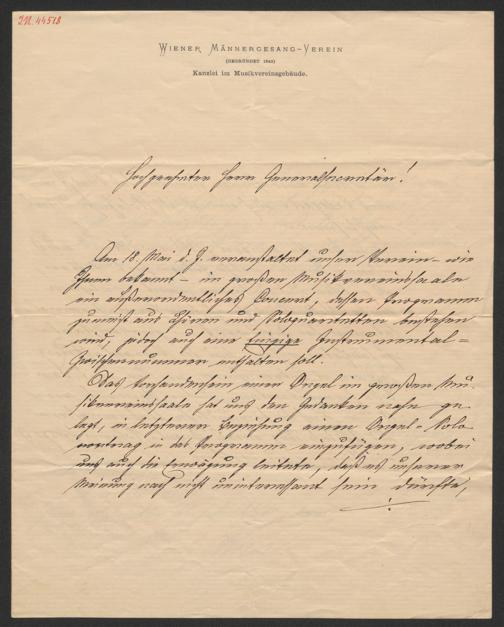 IN. 44518
WIENER MÄNNERGESANG-VEREIN
(GEGRÜNDET 1843)
Kanzlei im Musikvereinsgebäude.
Hochgeehrter Herr Generalsecretär!
Am 18. Mai d. J. veranstaltet unser Verein - wie
Ihnen bekannt - im großen Musikvereinssaale
ein außerordentliches Concert, dessen Programm
zumeist aus Chören und Soloquartetten bestehen
wird, jedoch auch eine einzige Instrumental=
Zwischennummer enthalten soll.
Das Vorhandensein einer Orgel im großen Mu-
sikvereinssaale hat uns den Gedanken nahe ge-
legt, in letzterer Beziehung einen Orgel-Solo
vortrag in das Programm einzufügen, wobei
uns auch die Erwägung leitete, daß es unserer
Meinung nach nicht uninteressant sein dürfte,